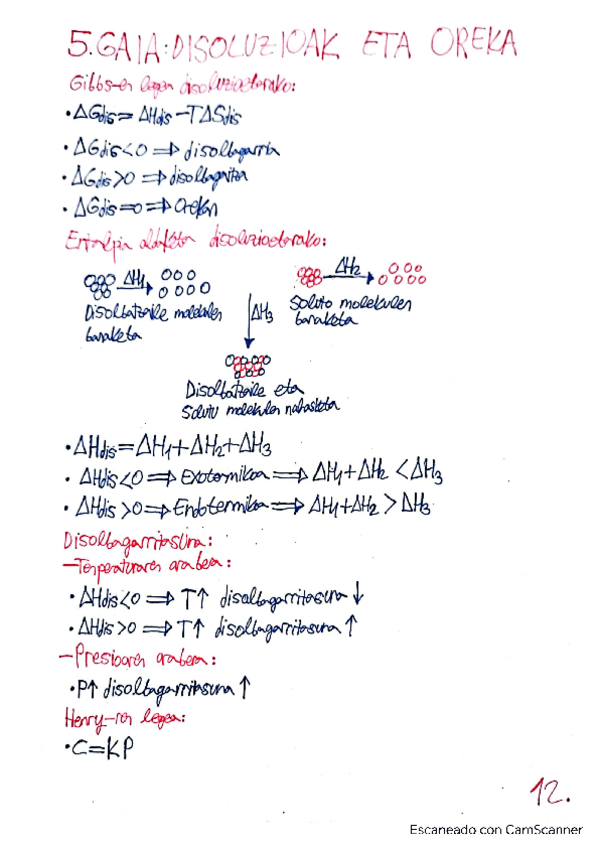 5.GAIA: DISOLUZIOAK ETA OREKA
Gibbs-en legea disoluzioetarako:
• ΔGdis = ΔHdis - TΔSdis
• ΔGdis < 0 ⇒ disolbagarria
• ΔGdis > 0 ⇒ disolbagaitza
• ΔGdis = 0 ⇒ Orekan
Entalpia aldaketa disoluzioetarako:
ΔH1
ΔH2
Disolbatzaile molekulen
banaketa
Soluto molekulen
banaketa
ΔH3
Disolbatzaile eta
Solutu molekulen nahasketa
• ΔHdis = ΔH1 + ΔH2 + ΔH3
• ΔHdis < 0 ⇒ Exotermikoa ⇒ ΔH1 + ΔH2 < ΔH3
• ΔHdis > 0 ⇒ Endotermikoa ⇒ ΔH1 + ΔH2 > ΔH3
Disolbagarritasuna:
- Tenperaturaren arabera:
• ΔHdis < 0 ⇒ T↑ disolbagarritasuna ↓
• ΔHdis > 0 ⇒ T↑ disolbagarritasuna ↑
- Presioaren arabera:
• P↑ disolbagarritasuna ↑
Henry-ren legea:
• C = KP
12.
Escaneado con CamScanner